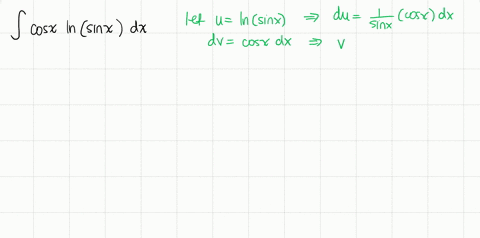 ∫ cosx ln(sinx) dx
let u = ln(sinx) ⇒ du = 1/sinx (cosx) dx
dv = cosx dx ⇒ v